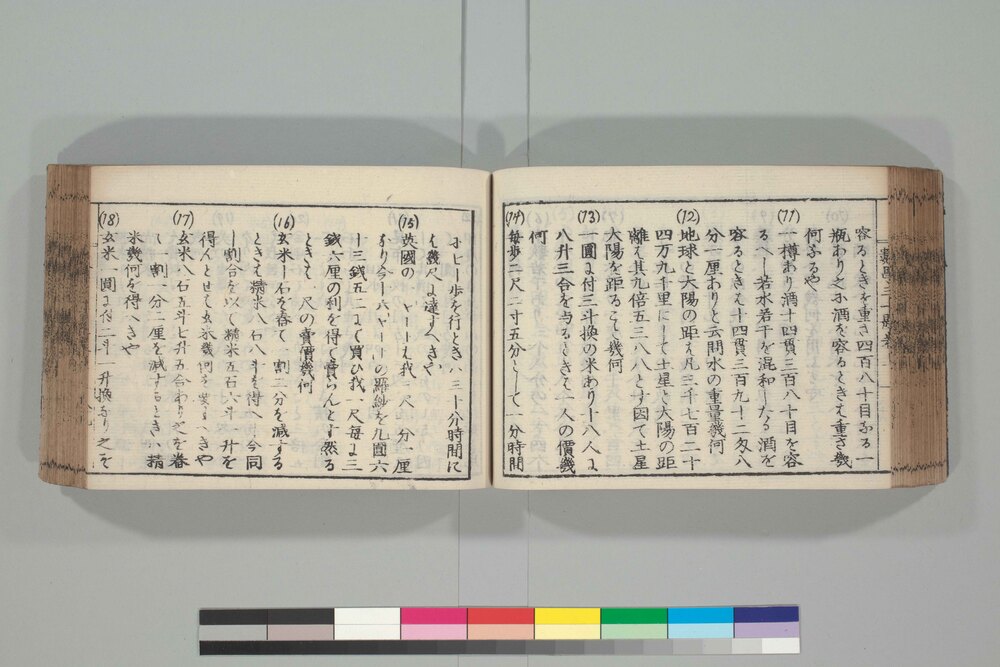 容るときを重さ四百八十目なる一
瓶あり之に酒を容るときを重さ幾
何なるや
(11)
一樽あり酒十四貫三百八十目を容
るへし若水若干を混和したる酒を
容るときを十四貫三百九十二匁八
分二厘ありと云問水の重量幾何
(12)
地球と大陽の距を凡三千七百二十
四万九千里にして土星と大陽の距
離を其九倍五三八八とす因て土星
大陽を距ること幾何
(13)
一圓に付三斗換の米あり十八人に
八升三合を与るときを一人の價幾
何
(14)
毎歩二尺二寸五分として一分時間
に七十歩を行ときハ三十分時間に
を幾尺に達すへきや
(15)
英國の一ヤールを我三尺一分一厘
なり今一六ヤールの羅紗を九圓六
十三錢五二にて買ひ我一尺毎に三
錢六厘の利を得て賣らんとす然る
ときを一尺の賣價幾何
(16)
玄米一石を舂て一割二分を減する
ときを精米八石八斗を得へし今同
し割合を以て精米五石六斗一升を
得んとせを玄米幾何を要すへきや
(17)
玄米八石五斗七升五合あり之を舂
て一割一分二厘を減するときハ精
米幾何を得へきや
(18)
玄米一圓に付二斗一升換なり之を